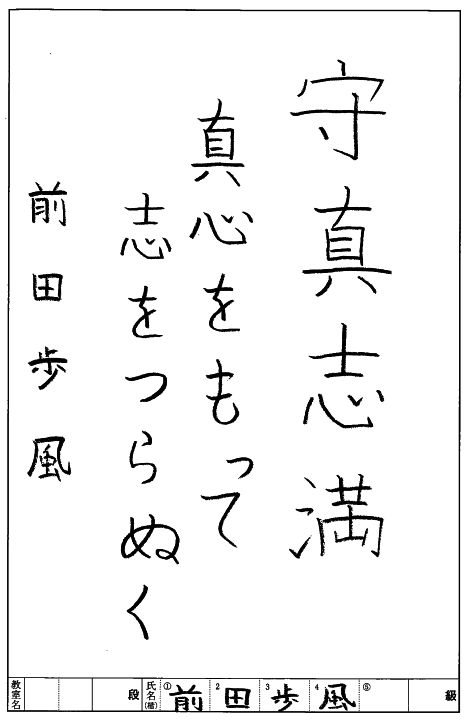 守真志満
真心をもって
志をつらぬく
前田歩風
教室名 段 氏名(楷) ①前 2田 3歩 4風 ⑤ 級